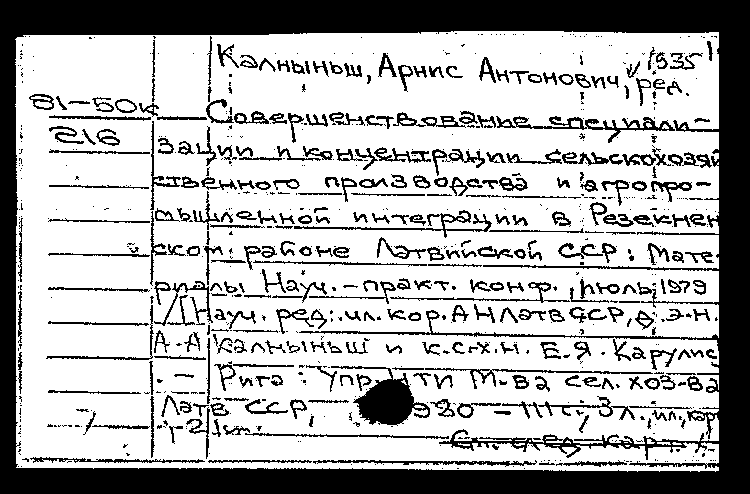 Калныньш, Арнис Антонович, 1935
ред.
81-50к
216
Совершенствование специали-
зации и концентрации сельскохозяй
ственного производства и агропро-
мышленной интеграции в Резекнен
ском районе Латвийской ССР: Мате-
риалы Науч.-практ. конф., июль, 1979
/[Науч. ред.: чл. кор. АН Латв ССР, д.э.н.
А.А Калныньш и к.с-х.н. Е.Я. Карулис
. - Рига: Упр. НТИ М-ва сел. хоз-ва
Латв ССР, 980 - 111 с., 3 л., ил., кар
См. след. карт.